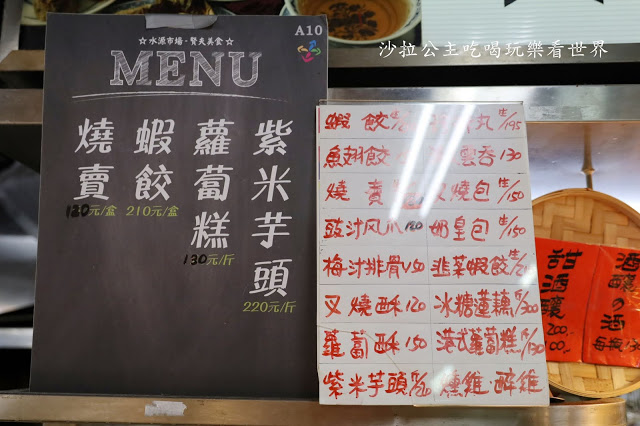 沙拉公主吃喝玩樂看世界
A10
☆水源市場·賢夫美食☆
MENU
紫米芋頭
220元/斤
蘿蔔糕
130元/斤
蝦餃
210元/盒
燒賣
180元/盒
蝦餃
丸 生/195
魚翅餃
雲吞 130
燒賣
叉燒包 生/150
豉汁风爪
奶皇包 生/150
梅汁排骨 150
韭菜蝦餃
叉燒酥 120
冰糖蓮藕 斤/300
蘿蔔酥 150
港式蘿蔔糕 斤/130
紫米芋頭
燻雞·醉雞
甜酒釀
200
100
酒釀の酒
每瓶